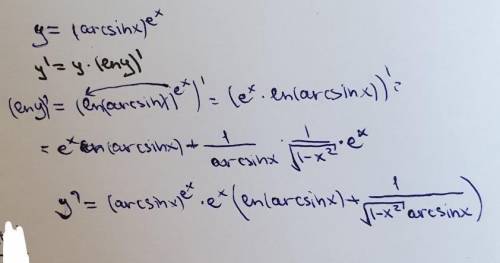 y = (arcsinx)^{e^x}
y' = y · (lny)'
(lny)' = (ln(arcsinx)^{e^x})' = (e^x · ln(arcsinx))' =
= e^x ln(arcsinx) + \frac{1}{arcsinx} · \frac{1}{\sqrt{1-x^2}} · e^x
y' = (arcsinx)^{e^x} · e^x (ln(arcsinx) + \frac{1}{\sqrt{1-x^2} arcsinx})